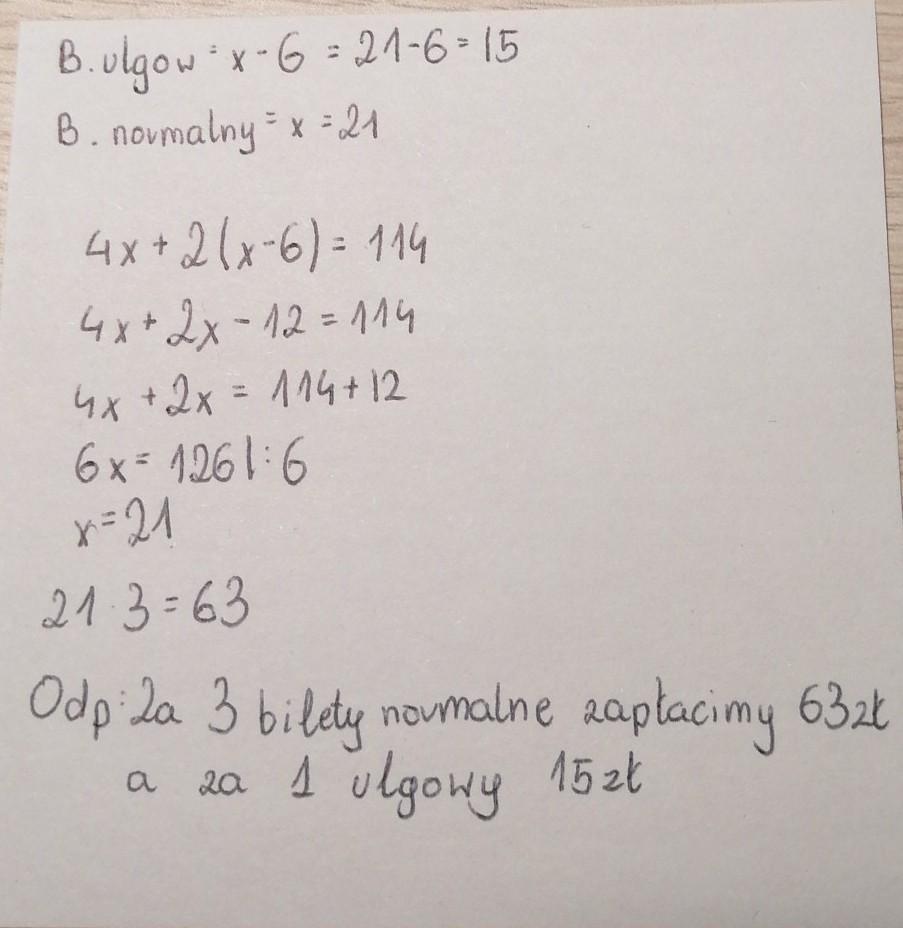 B. ulgow = x - 6 = 21 - 6 = 15
B. normalny = x = 21
4x + 2(x - 6) = 114
4x + 2x - 12 = 114
4x + 2x = 114 + 12
6x = 126 |: 6
x = 21
21 · 3 = 63
Odp: Za 3 bilety normalne zapłacimy 63zł
a za 1 ulgowy 15zł